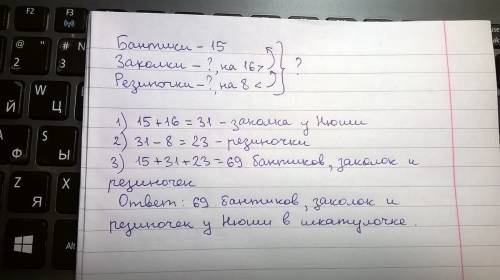 Бантики – 15
Заколки – ?, на 16 > } ?
Резиночки – ?, на 8 <
1) 15 + 16 = 31 – заколка у Нюши
2) 31 – 8 = 23 – резиночки
3) 15 + 31 + 23 = 69 бантиков, заколок и
резиночек
Ответ: 69 бантиков, заколок и
резиночек у Нюши в шкатулочке.
F2
F3
@ 2 "
# 3 №
Й
W Ц
Ф
S Ы
Z Я
Alt